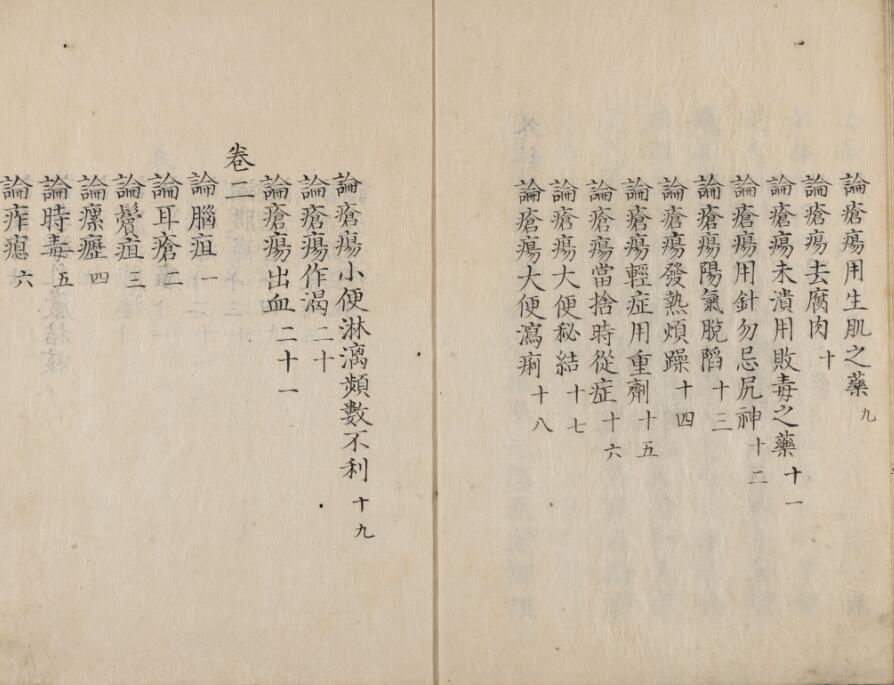 論瘡瘍用生肌之藥九
論瘡瘍去腐肉十
論瘡瘍未潰用敗毒之藥十一
論瘡瘍用針勿忌尻神十二
論瘡瘍陽氣脫陷十三
論瘡瘍發熱煩躁十四
論瘡瘍輕症用重劑十五
論瘡瘍當捨時從症十六
論瘡瘍大便秘結十七
論瘡瘍大便瀉痢十八
論瘡瘍小便淋漓頻數不利十九
論瘡瘍作渴二十
論瘡瘍出血二十一
卷二
論腦疽一
論耳瘡二
論鬢疽三
論瘰癧四
論時毒五
論痄瘜六